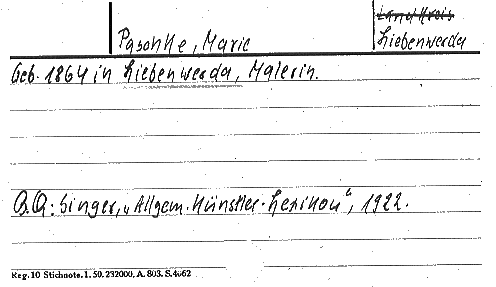 Landkreis
Paschke, Marie Liebenwerda
Geb. 1864 in Liebenwerda, Malerin.
Q.Q: Singer, „Allgem. Künstler-Lexikon", 1922.
Reg. 10 Stichnote. 1. 50. 232000, A. 803. S. 4062